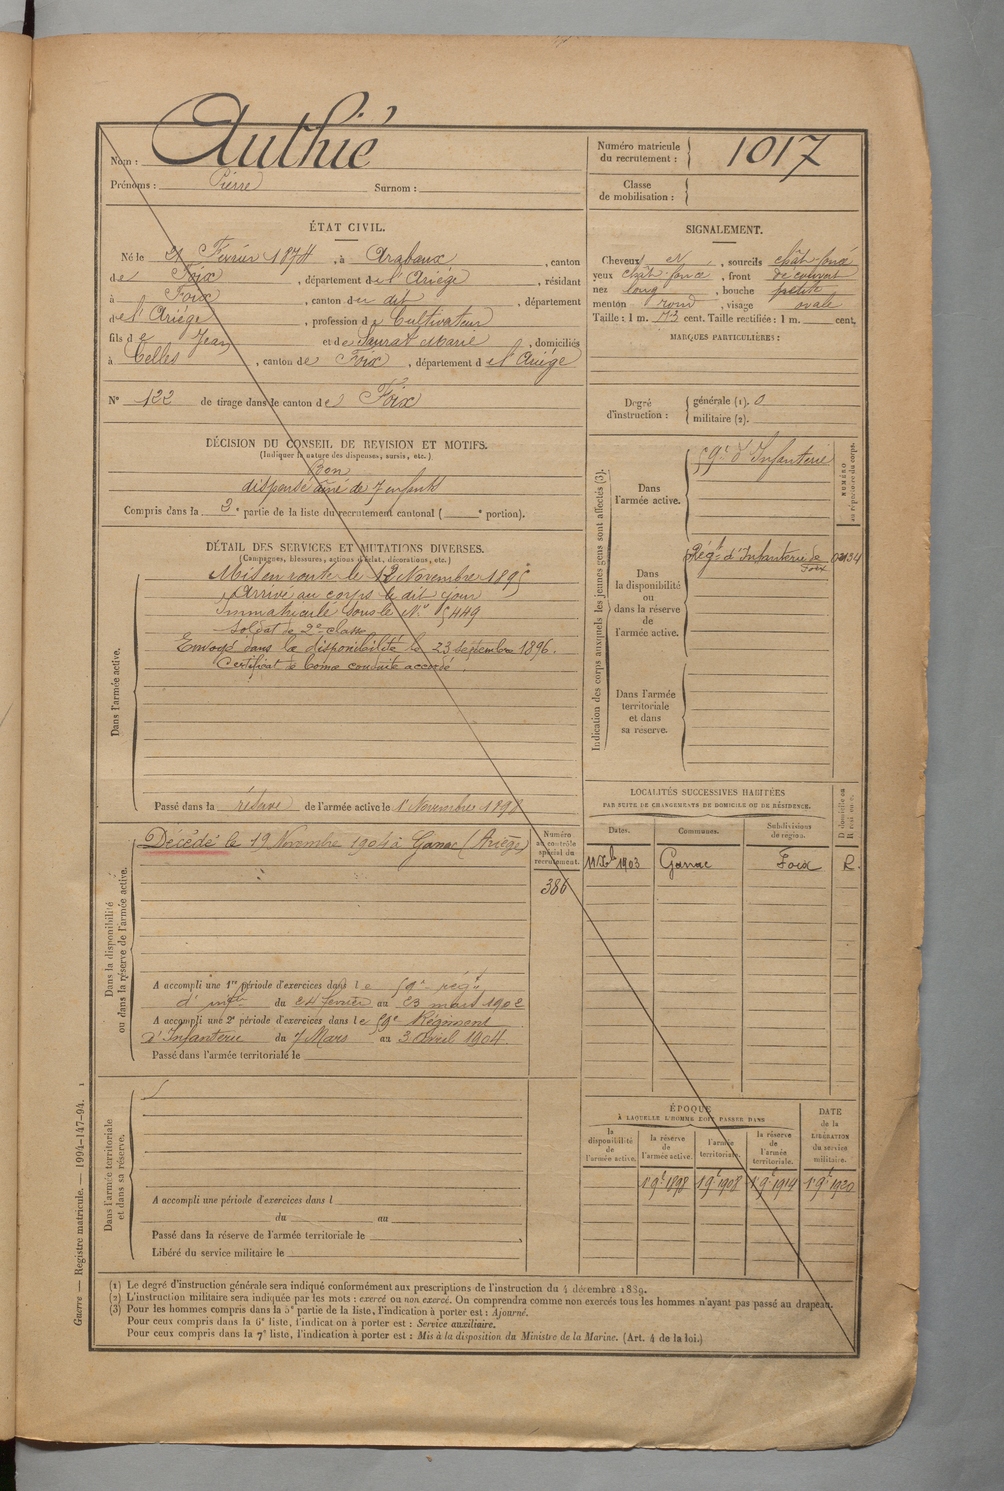 Nom : Authié
Prénoms : Pierre Surnom :
Numéro matricule du recrutement : 1017
Classe de mobilisation :
ÉTAT CIVIL.
Né le 21 Février 1874, à Arabaux, canton
de Foix, département de l'Ariège, résidant
à Foix, canton du dit, département
de l'Ariège, profession de Cultivateur
fils de Jean et de Saurat Marie, domiciliés
à Celles, canton de Foix, département de l'Ariège
N° 122 de tirage dans le canton de Foix
SIGNALEMENT.
Cheveux et, sourcils chât. foncé
yeux chât. foncé, front découvert
nez long, bouche petite
menton rond, visage ovale
Taille : 1 m. 73 cent. Taille rectifiée : 1 m. cent.
MARQUES PARTICULIÈRES :
Degré d'instruction : générale (1). 0
militaire (2).
DÉCISION DU CONSEIL DE REVISION ET MOTIFS.
(Indiquer la nature des dispenses, sursis, etc.)
Bon
dispensé aîné de 7 enfants
Compris dans la 2e partie de la liste du recrutement cantonal ( e portion).
DÉTAIL DES SERVICES ET MUTATIONS DIVERSES.
(Campagnes, blessures, actions d'éclat, décorations, etc.)
Dans l'armée active.
Mis en route le 12 Novembre 1895
Arrivé au corps le dit jour
Immatriculé sous le N° 5449
Soldat de 2e classe
Envoyé dans la disponibilité le 23 septembre 1896.
Certificat de bonne conduite accordé.
Passé dans la réserve de l'armée active le 1r Novembre 1898
Indication des corps auxquels les jeunes gens sont affectés (3).
NUMÉRO au répertoire du corps.
Dans l'armée active.
59e d'Infanterie
Dans la disponibilité ou dans la réserve de l'armée active.
Rég.t d'Infanterie de Foix
Dans l'armée territoriale et dans sa réserve.
LOCALITÉS SUCCESSIVES HABITÉES
PAR SUITE DE CHANGEMENTS DE DOMICILE OU DE RÉSIDENCE.
D domicile ou R résidence.
Dates. Communes. Subdivisions de région.
11 Xbre 1903 Ganac Foix R.
Dans la disponibilité ou dans la réserve de l'armée active.
Décédé le 19 Novembre 1904 à Ganac (Ariège)
Numéro au contrôle spécial du recrutement.
386
A accompli une 1re période d'exercices dans le 59e régt
d'inft du 24 février au 23 mars 1902
A accompli une 2e période d'exercices dans le 59e Régiment
d'Infanterie du 7 Mars au 3 avril 1904.
Passé dans l'armée territoriale le
Dans l'armée territoriale et dans sa réserve.
A accompli une période d'exercices dans l
du au
Passé dans la réserve de l'armée territoriale le
Libéré du service militaire le
ÉPOQUE
À LAQUELLE L'HOMME DOIT PASSER DANS
DATE de la LIBÉRATION du service militaire.
la disponibilité de l'armée active. la réserve de l'armée active. l'armée territoriale. la réserve de l'armée territoriale.
1r 9bre 1898 1r 9bre 1908 1r 9bre 1914 1r 9bre 1920
(1) Le degré d'instruction générale sera indiqué conformément aux prescriptions de l'instruction du 4 décembre 1889.
(2) L'instruction militaire sera indiquée par les mots : exercé ou non exercé. On comprendra comme non exercés tous les hommes n'ayant pas passé au drapeau.
(3) Pour les hommes compris dans la 5e partie de la liste, l'indication à porter est : Ajourné.
Pour ceux compris dans la 6e liste, l'indication à porter est : Service auxiliaire.
Pour ceux compris dans la 7e liste, l'indication à porter est : Mis à la disposition du Ministre de la Marine. (Art. 4 de la loi.)
Guerre — Registre matricule. — 1994-147-94. 1